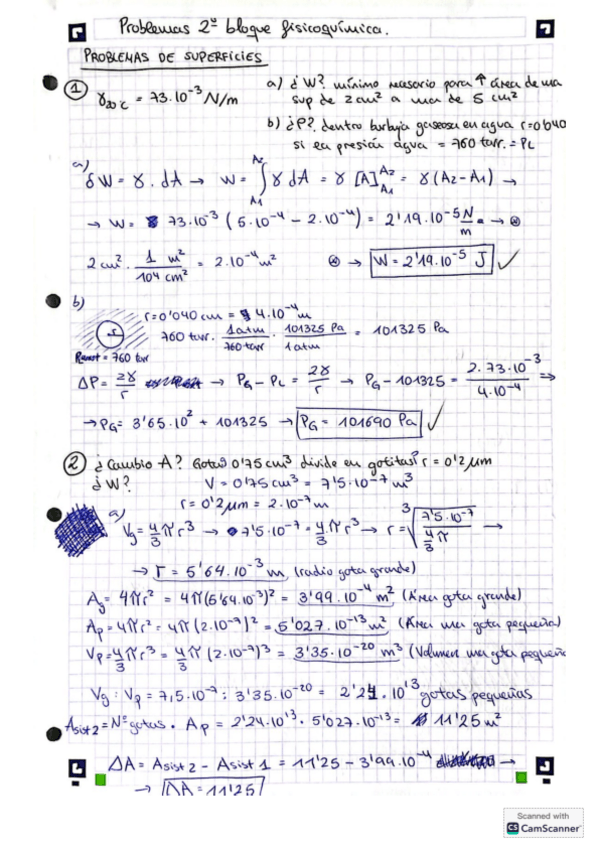 Problemas 2º bloque fisicoquímica.
PROBLEMAS DE SUPERFICIES
① γ20ºC = 73·10⁻³ N/m
a) ¿W? mínimo necesario para ↑ área de una
sup de 2cm² a una de 5 cm²
b) ¿P? dentro burbuja gaseosa en agua r=0'040
si en presión agua = 760 torr. = PL
a)
δW = γ · dA → W = ∫A1 A2 γ dA = γ [A]A1 A2 = γ(A2-A1) →
→ W = 73·10⁻³ (5·10⁻⁴ - 2·10⁻⁴) = 2'19·10⁻⁵ N/m → ⊛
2cm² · 1 m²/104 cm² = 2·10⁻⁴ m² ⊛ → W = 2'19·10⁻⁵ J ✓
b)
r=0'040 cm = 4·10⁻⁴ m
r
760 torr · 1atm/760 torr · 101325 Pa/1 atm = 101325 Pa
= 760 torr
ΔP = 2γ/r → PG - PL = 2γ/r → PG - 101325 = 2·73·10⁻³/4·10⁻⁴ ⇒
→ PG = 3'65·10² + 101325 → PG = 101690 Pa ✓
② ¿Cambio A? Gotas 0'75 cm³ divide en gotitas r = 0'2 μm
¿W? V = 0'75 cm³ = 7'5·10⁻⁷ m³
r = 0'2 μm = 2·10⁻⁷ m
a) Vg = 4/3 π r³ → 7'5·10⁻⁷ = 4/3 π r³ → r = ∛(7'5·10⁻⁷ / 4/3 π) →
→ r = 5'64·10⁻³ m (radio gota grande)
Ag = 4πr² = 4π(5'64·10⁻³)² = 3'99·10⁻⁴ m² (Área gota grande)
Ap = 4πr² = 4π(2·10⁻⁷)² = 5'027·10⁻¹³ m² (Área una gota pequeña)
Vp = 4/3 πr³ = 4/3 π (2·10⁻⁷)³ = 3'35·10⁻²⁰ m³ (Volumen una gota pequeña
Vg : Vp = 7,5·10⁻⁷ : 3'35·10⁻²⁰ = 2'24·10¹³ gotas pequeñas
Asist2 = Nº gotas · Ap = 2'24·10¹³ · 5'027·10⁻¹³ = 11'25 m²
ΔA = Asist2 - Asist1 = 11'25 - 3'99·10⁻⁴ →
→ ΔA = 11'25
Scanned with
CS CamScanner